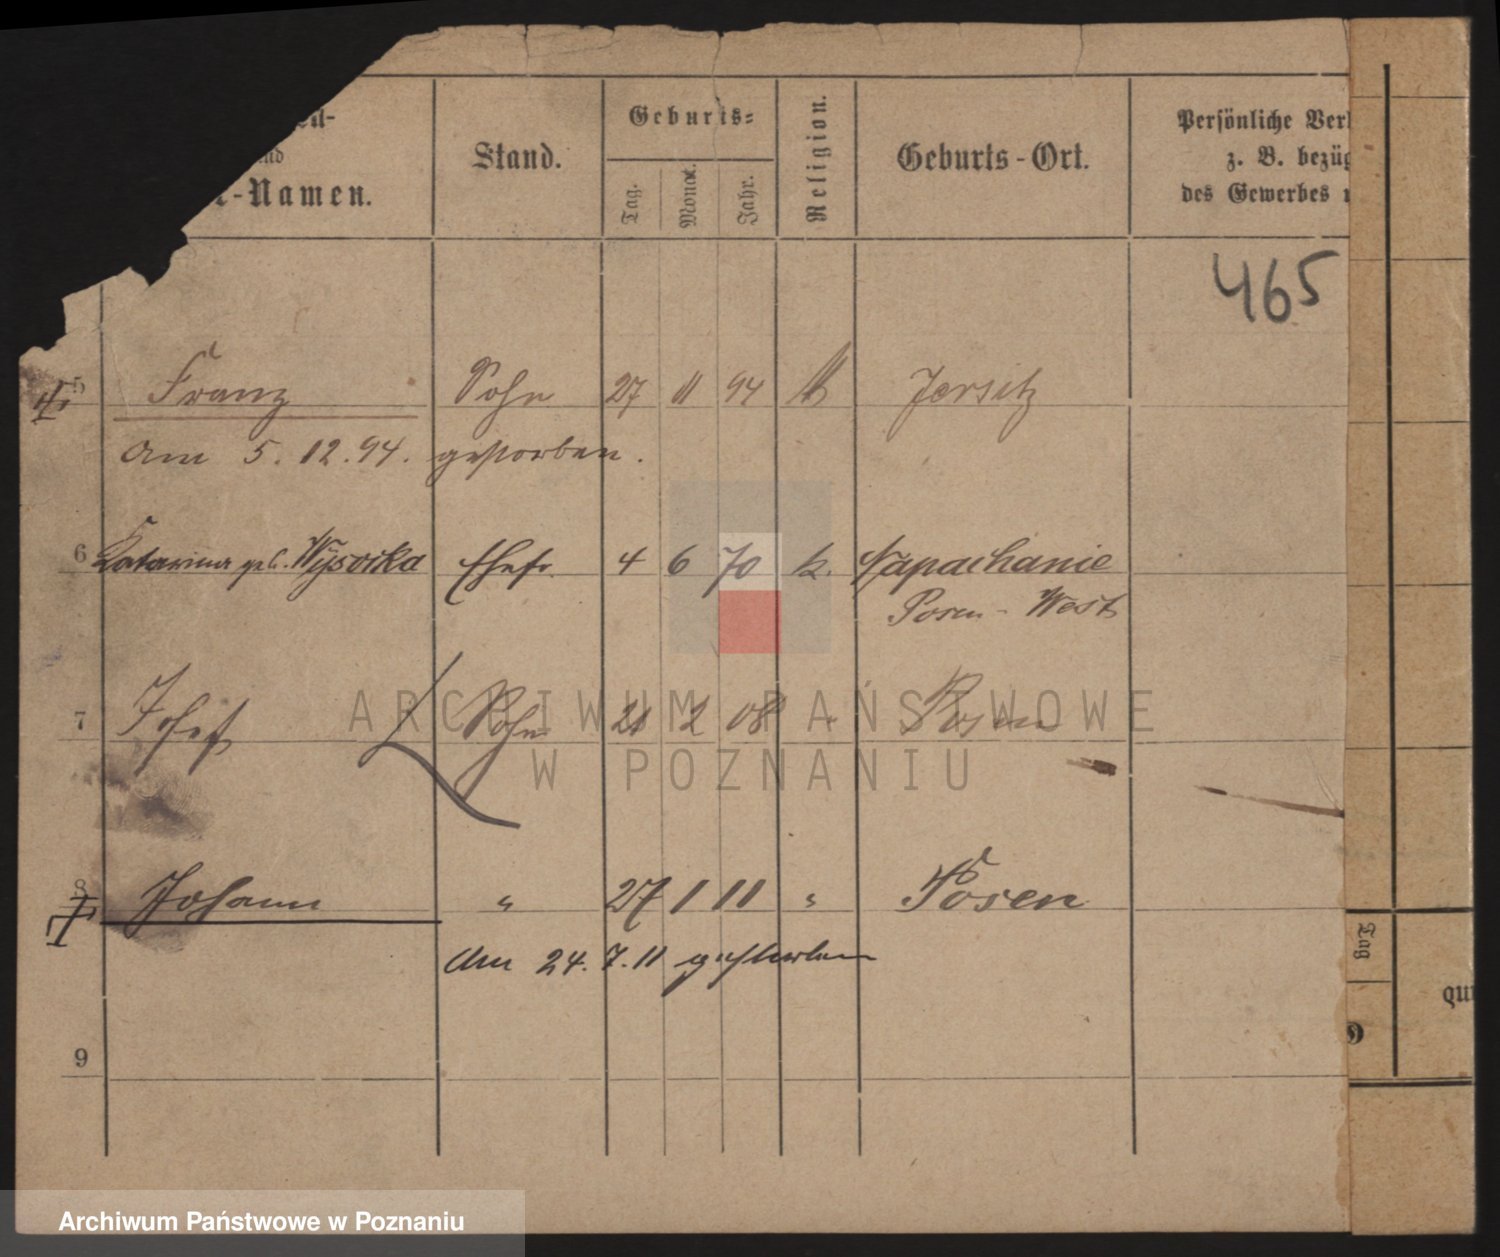 -Namen.
Stand.
Geburts=
Tag.
Monat.
Jahr.
Religion.
Geburts-Ort.
Persönliche
z. B.
des Gewerbes
465
5 Franz Sohn 27 11 94 Jersitz
Am 5. 12. 94. gestorben.
6 Katarina geb. Wysocka Ehefr. 4 6 70 k. Napachanie
Posen-West
7 Josef Sohn 21 2 08 " Posen
8 Johann " 27 1 11 " Posen
Am 24. 7. 11 gestorben
9
Tag
ARCHIWUM PAŃSTWOWE
W POZNANIU
Archiwum Państwowe w Poznaniu